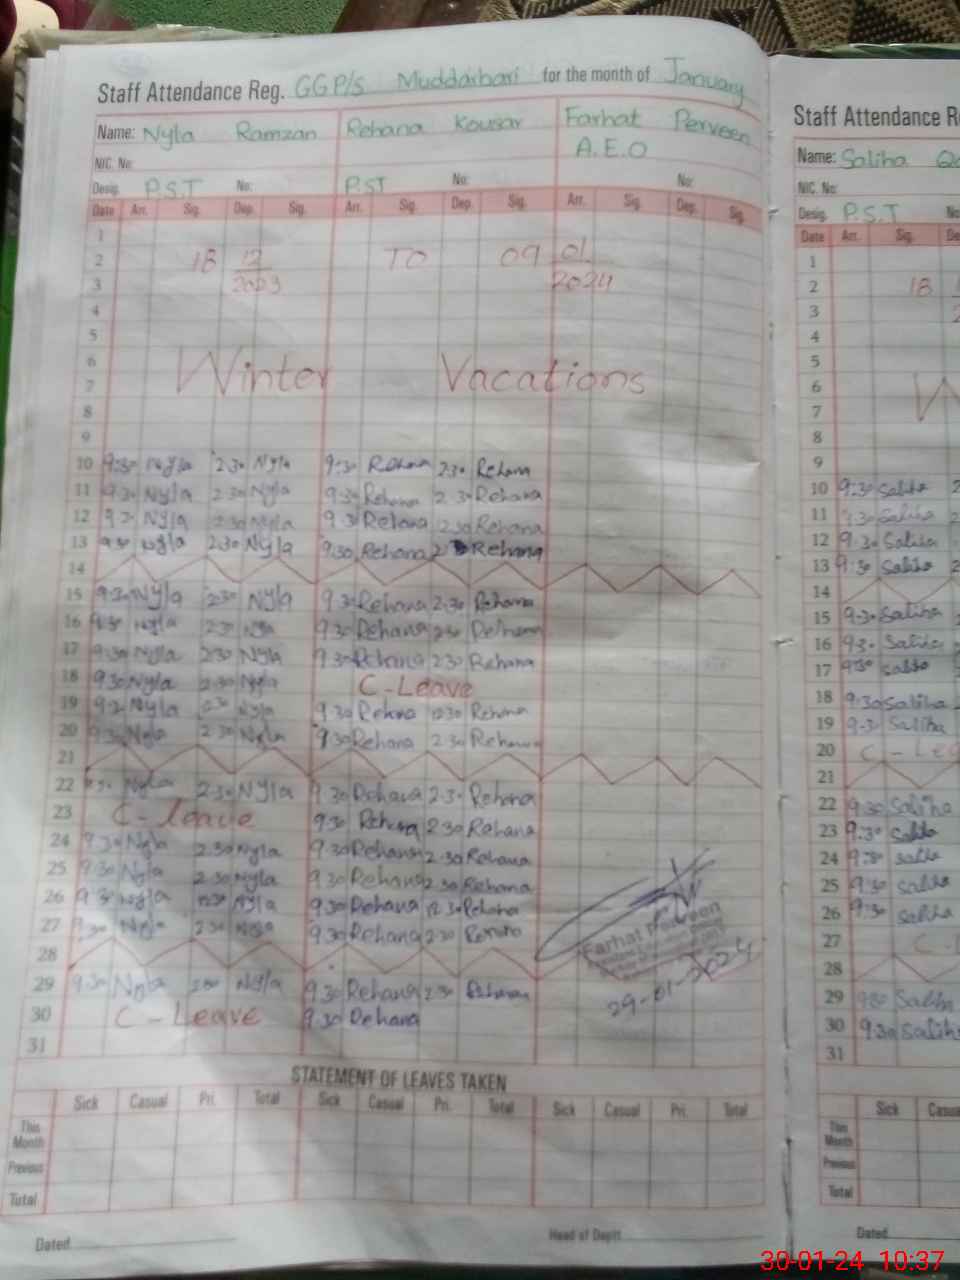 Staff Attendance Reg. GGP/s Muddarbari for the month of January
Name: Nyla Ramzan Rehana Kousar Farhat Perveen
A.E.O
NIC. No:
Desig. P.S.T No: P.ST No: No:
Date Arr. Sig. Dep. Sig. Arr. Sig. Dep. Sig. Arr. Sig. Dep. Sig.
1
2 18 12 TO 09 01
3 2023 2024
4
5
6 Winter Vacations
7
8
9
10 9:30 Nyla 2:30 Nyla 9:30 Rehana 2:30 Rehana
11 9:30 Nyla 2:30 Nyla 9:30 Rehana 2:30 Rehana
12 Nyla 2:30 Nyla 9:30 Rehana 2:30 Rehana
13 9:30 Nyla 2:30 Nyla 9:30 Rehana Rehana
14
15 9:30 Nyla 2:30 Nyla 9:30 Rehana 2:30 Rehana
16 9:30 Nyla 2:30 Nyla 9:30 Rehana 2:30 Rehana
17 9:30 Nyla 2:30 Nyla 9:30 Rehana 2:30 Rehana
18 9:30 Nyla 2:30 Nyla C-Leave
19 Nyla Nyla 9:30 Rehna 12:30 Rehana
20 9:30 Nyla 2:30 Nyla 9:30 Rehana 2:30 Rehana
21
22 Nyla 2:30 Nyla 9:30 Rehana 2:30 Rehana
23 C-leave 9:30 Rehana 2:30 Rehana
24 9:30 Nyla 2:30 Nyla 9:30 Rehana 2:30 Rehana
25 9:30 Nyla 2:30 Nyla 9:30 Rehana 2:30 Rehana
26 9:30 Nyla 12:30 Nyla 9:30 Rehana 12:30 Rehana
27 9:30 Nyla 2:30 Nyla 9:30 Rehana 2:30
28
Farhat Perveen
29-01-2024
29 9:30 Nyla Nyla 9:30 Rehana 2:30 Rehana
30 C-Leave 9:30 Rehana
31
STATEMENT OF LEAVES TAKEN
Sick Casual Pri. Total Sick Casual Pri. Total Sick Casual Pri. Total
This Month
Previous
Total
Dated Head of Deptt
Staff Attendance Re
Name: Saliha
NIC. No:
Desig. P.S.T No
Date Arr. Sig. De
1
2 18
3
4
5
6 W
7
8
9
10 9:30 Saliha 2
11 9:30 Saliha
12 9:30 Saliha
13 9:30 Saliha
14
15 9:30 Saliha
16 9:30 Saliha
17 9:30 Saliha
18 9:30 Saliha
19 9:30 Saliha
20 C-Lea
21
22 9:30 Saliha
23 9:30 Saliha
24 9:30 Saliha
25 9:30 Saliha
26 9:30 Saliha
27 C-
28
29 9:30 Saliha
30 9:30 Saliha
31
Sick Casua
This Month
Previous
Total
Dated
30-01-24 10:37